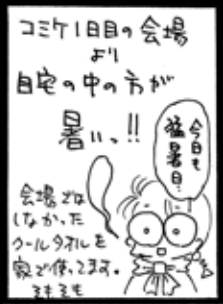 コミケ1日目の会場
より
自宅の中の方が
暑いっ!!
今日も
猛暑日…
会場では
しなかった
クールタオルを
家で使ってます。